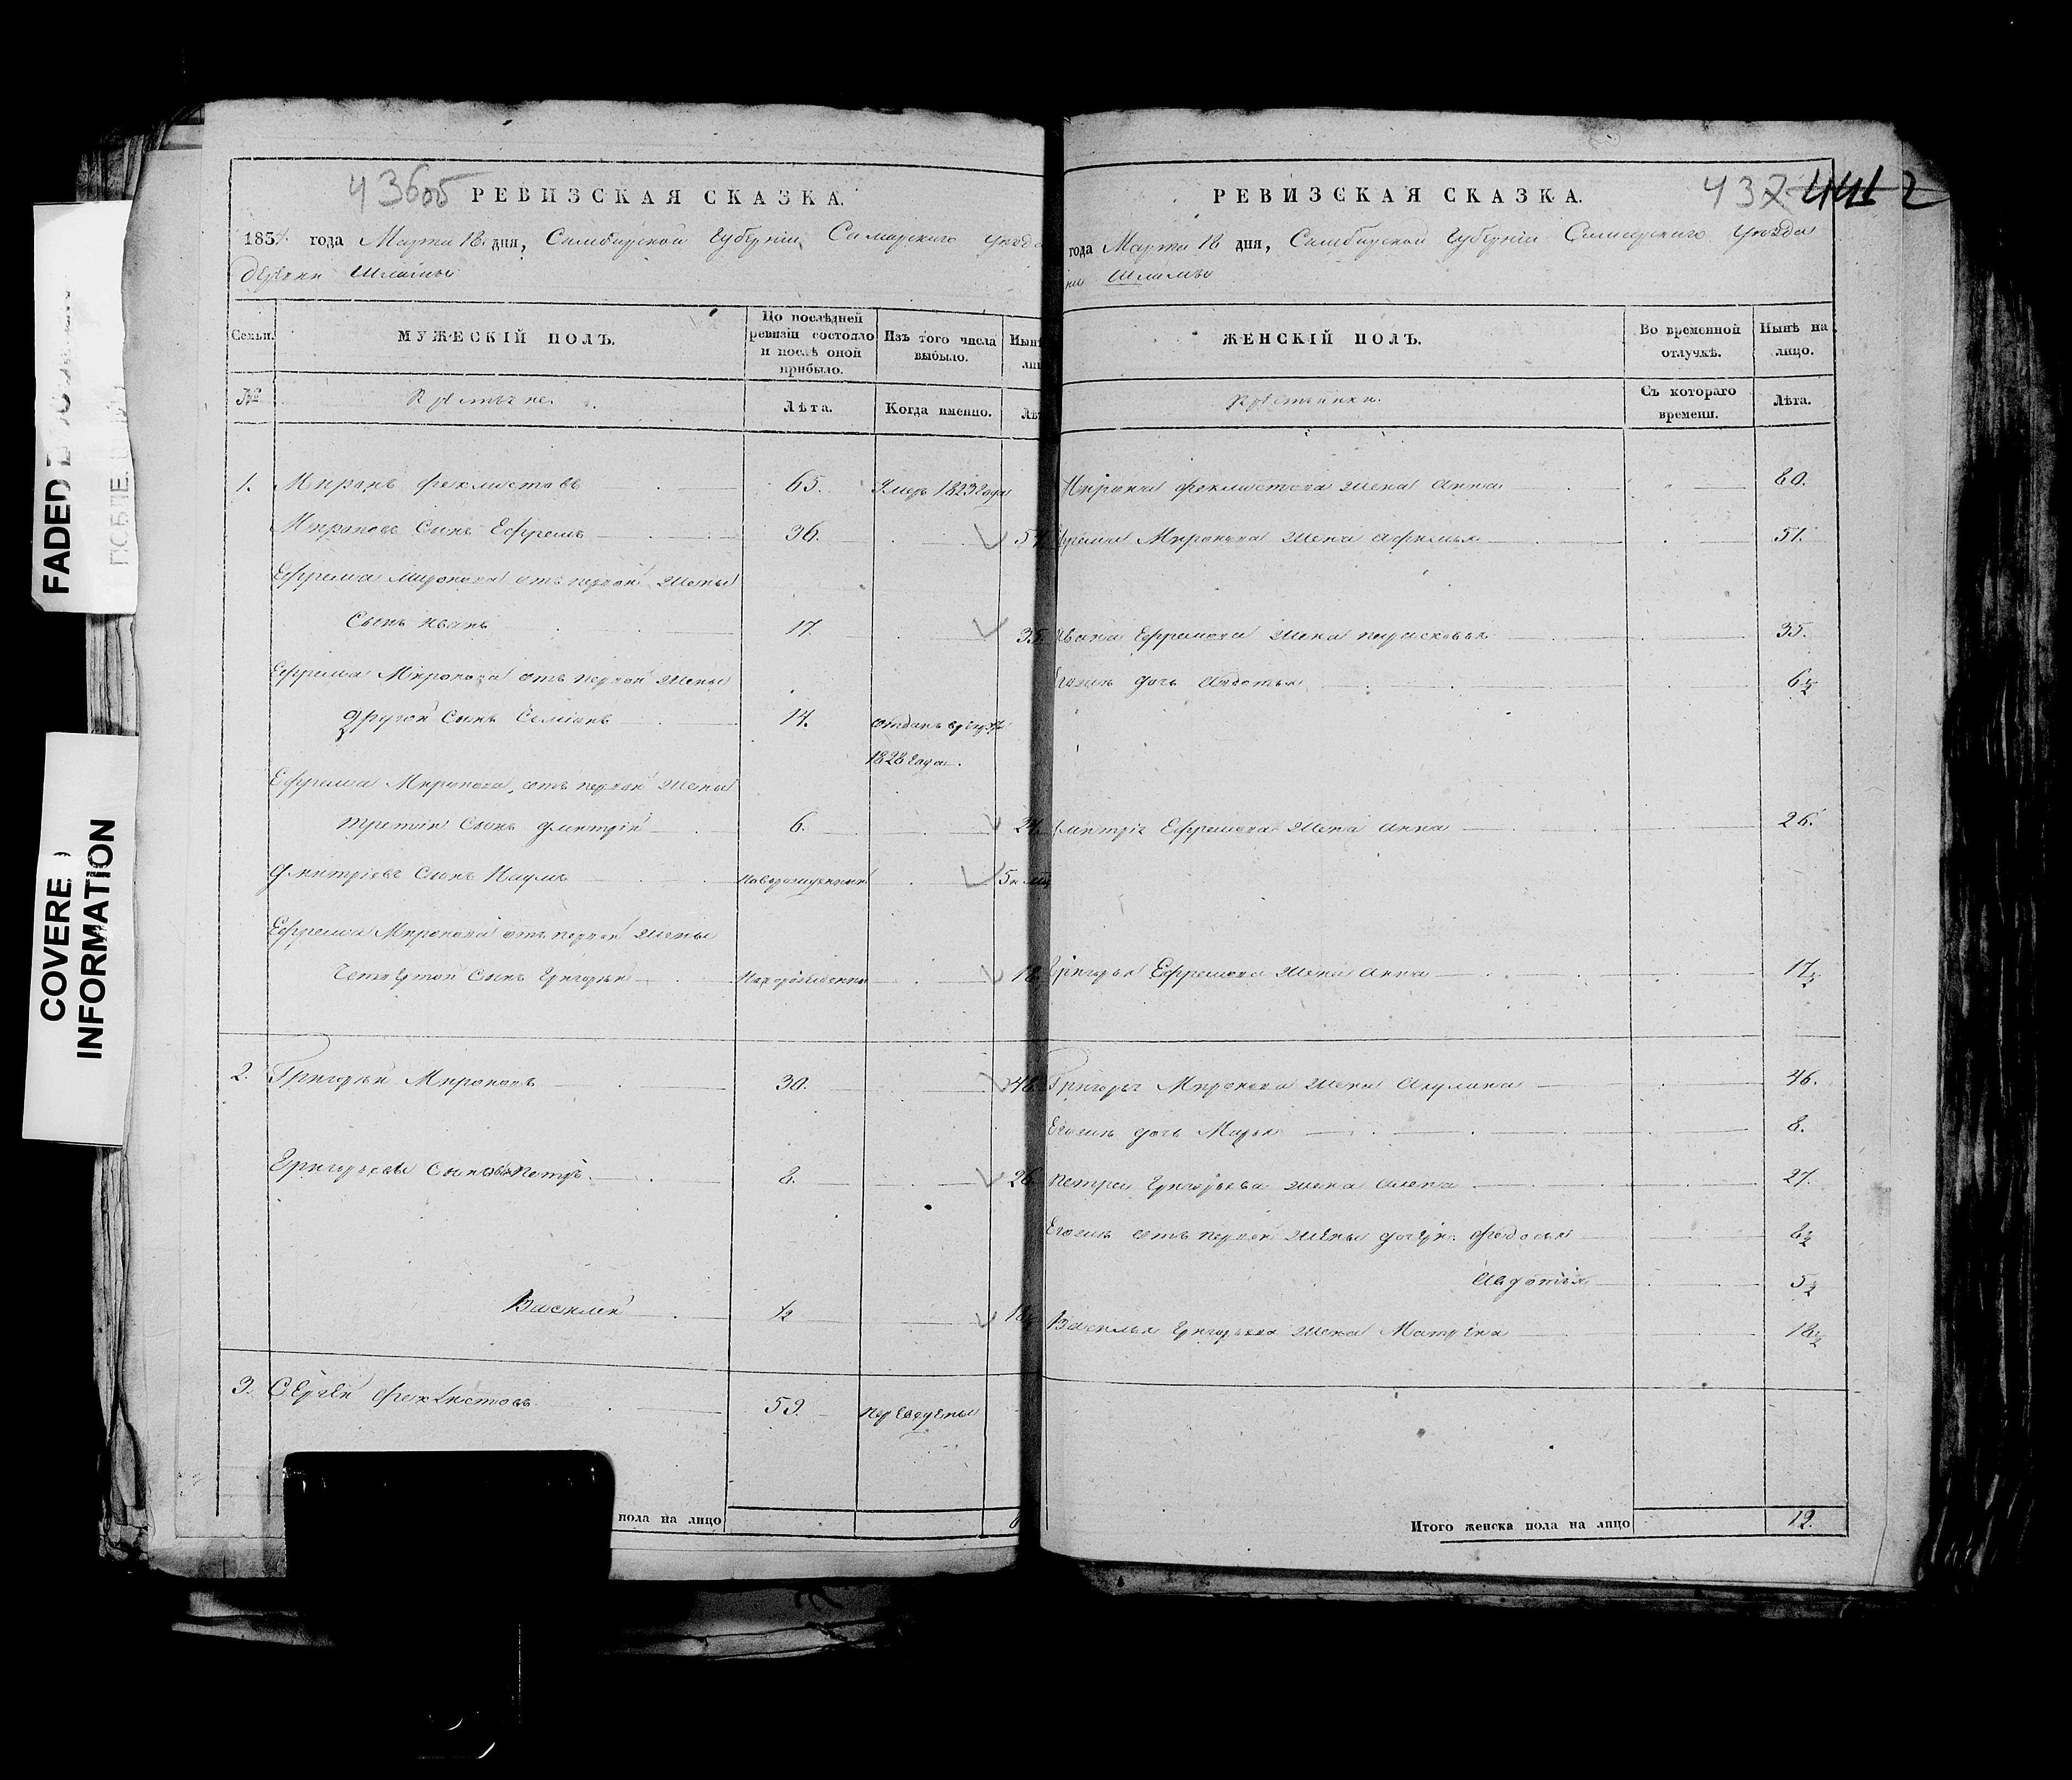 436об РЕВИЗСКАЯ СКАЗКА.
1834 года Марта 18 дня, Симбирской Губерніи, Самарского уезда
деревни Шламы
Семьи. МУЖЕСКІЙ ПОЛЪ. По послѣдней ревизіи состояло и послѣ оной прибыло. Изъ того числа выбыло.
№ Крестьяне. Лѣта. Когда именно.
1. Миронъ Феклистовъ 65. Умеръ 1823 года
Мироновъ Сынъ Ефремъ 36. 54
Ефрема Миронова отъ первой жены
Сынъ Иванъ 17. 35
Ефрема Миронова отъ первой жены
Другой Сынъ Семіонъ 14. отданъ
1828 года.
Ефрема Миронова, отъ первой жены
третій Сынъ Дмитрій 6. 24
Дмитріевъ Сынъ Наумъ Новорожденный 5
Ефрема Миронова отъ первой жены
Четвертой Сынъ Григорій Новорожденный 18
2. Григорій Мироновъ 30. 48
Григорьевы Сыновья Петръ 8. 26
Василей ½ 18½
3. Сергей Феклистовъ 59. переведены
пола на лицо
РЕВИЗСКАЯ СКАЗКА. 437 441 2
года Марта 18 дня, Симбирской Губерніи Самарского уезда
ни Шламы
ЖЕНСКІЙ ПОЛЪ. Во временной отлучкѣ. Нынѣ на лицо.
Крестьянки. Съ котораго времени. Лѣта.
Мирона Феклистова жена Анна 80.
Миронова жена Афимья 51.
Ивана Ефремова жена Парасковья 35.
Евоинъ дочь Авдотья 6½
Дмитрія Ефремова жена Анна 26.
Григорья Ефремова жена Анна 17½
Григорья Миронова жена Акулина 46.
Евоинъ дочь Марья 8.
Петра Григорьева жена Алена 27.
Евоинъ отъ первой жены дочери: Федосья 8½
Авдотія 5½
Василья Григорьева жена Матрена 18½
Итого женска пола на лицо 12.
FADED D
COVERE )
INFORMATION